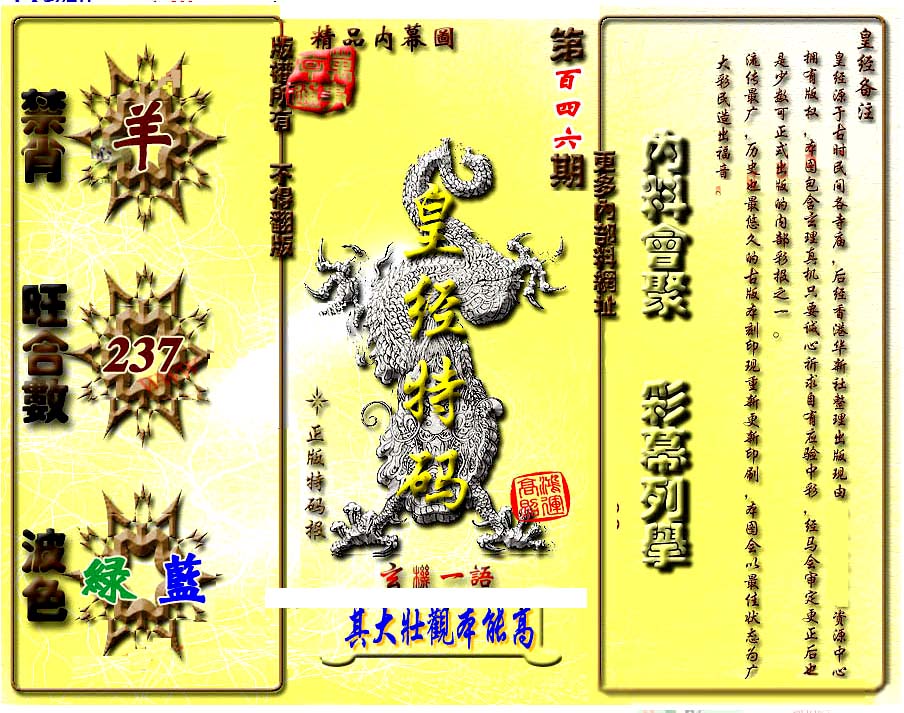 皇经备注
皇经源于古时民间各寺庙，后经香港华新社整理出版现由 资源中心
拥有版权，本图包含玄理真机只要诚心祈求自有应验中彩，经马会审定更正后也
是少数可正式出版的内部彩报之一。
流传最广，历史也最悠久的古版本刻印现重新更新印刷，本图会以最佳状态为广
大彩民造出福音
內料會聚
彩幕列舉
更多內部料網址
第百四六期
精品内幕圖
版權所有 不得翻版
皇经特码
正版特码报
鴻運高照
玄機一語
其大壯觀本能高
禁肖
羊
旺合數
237
波色
綠 藍